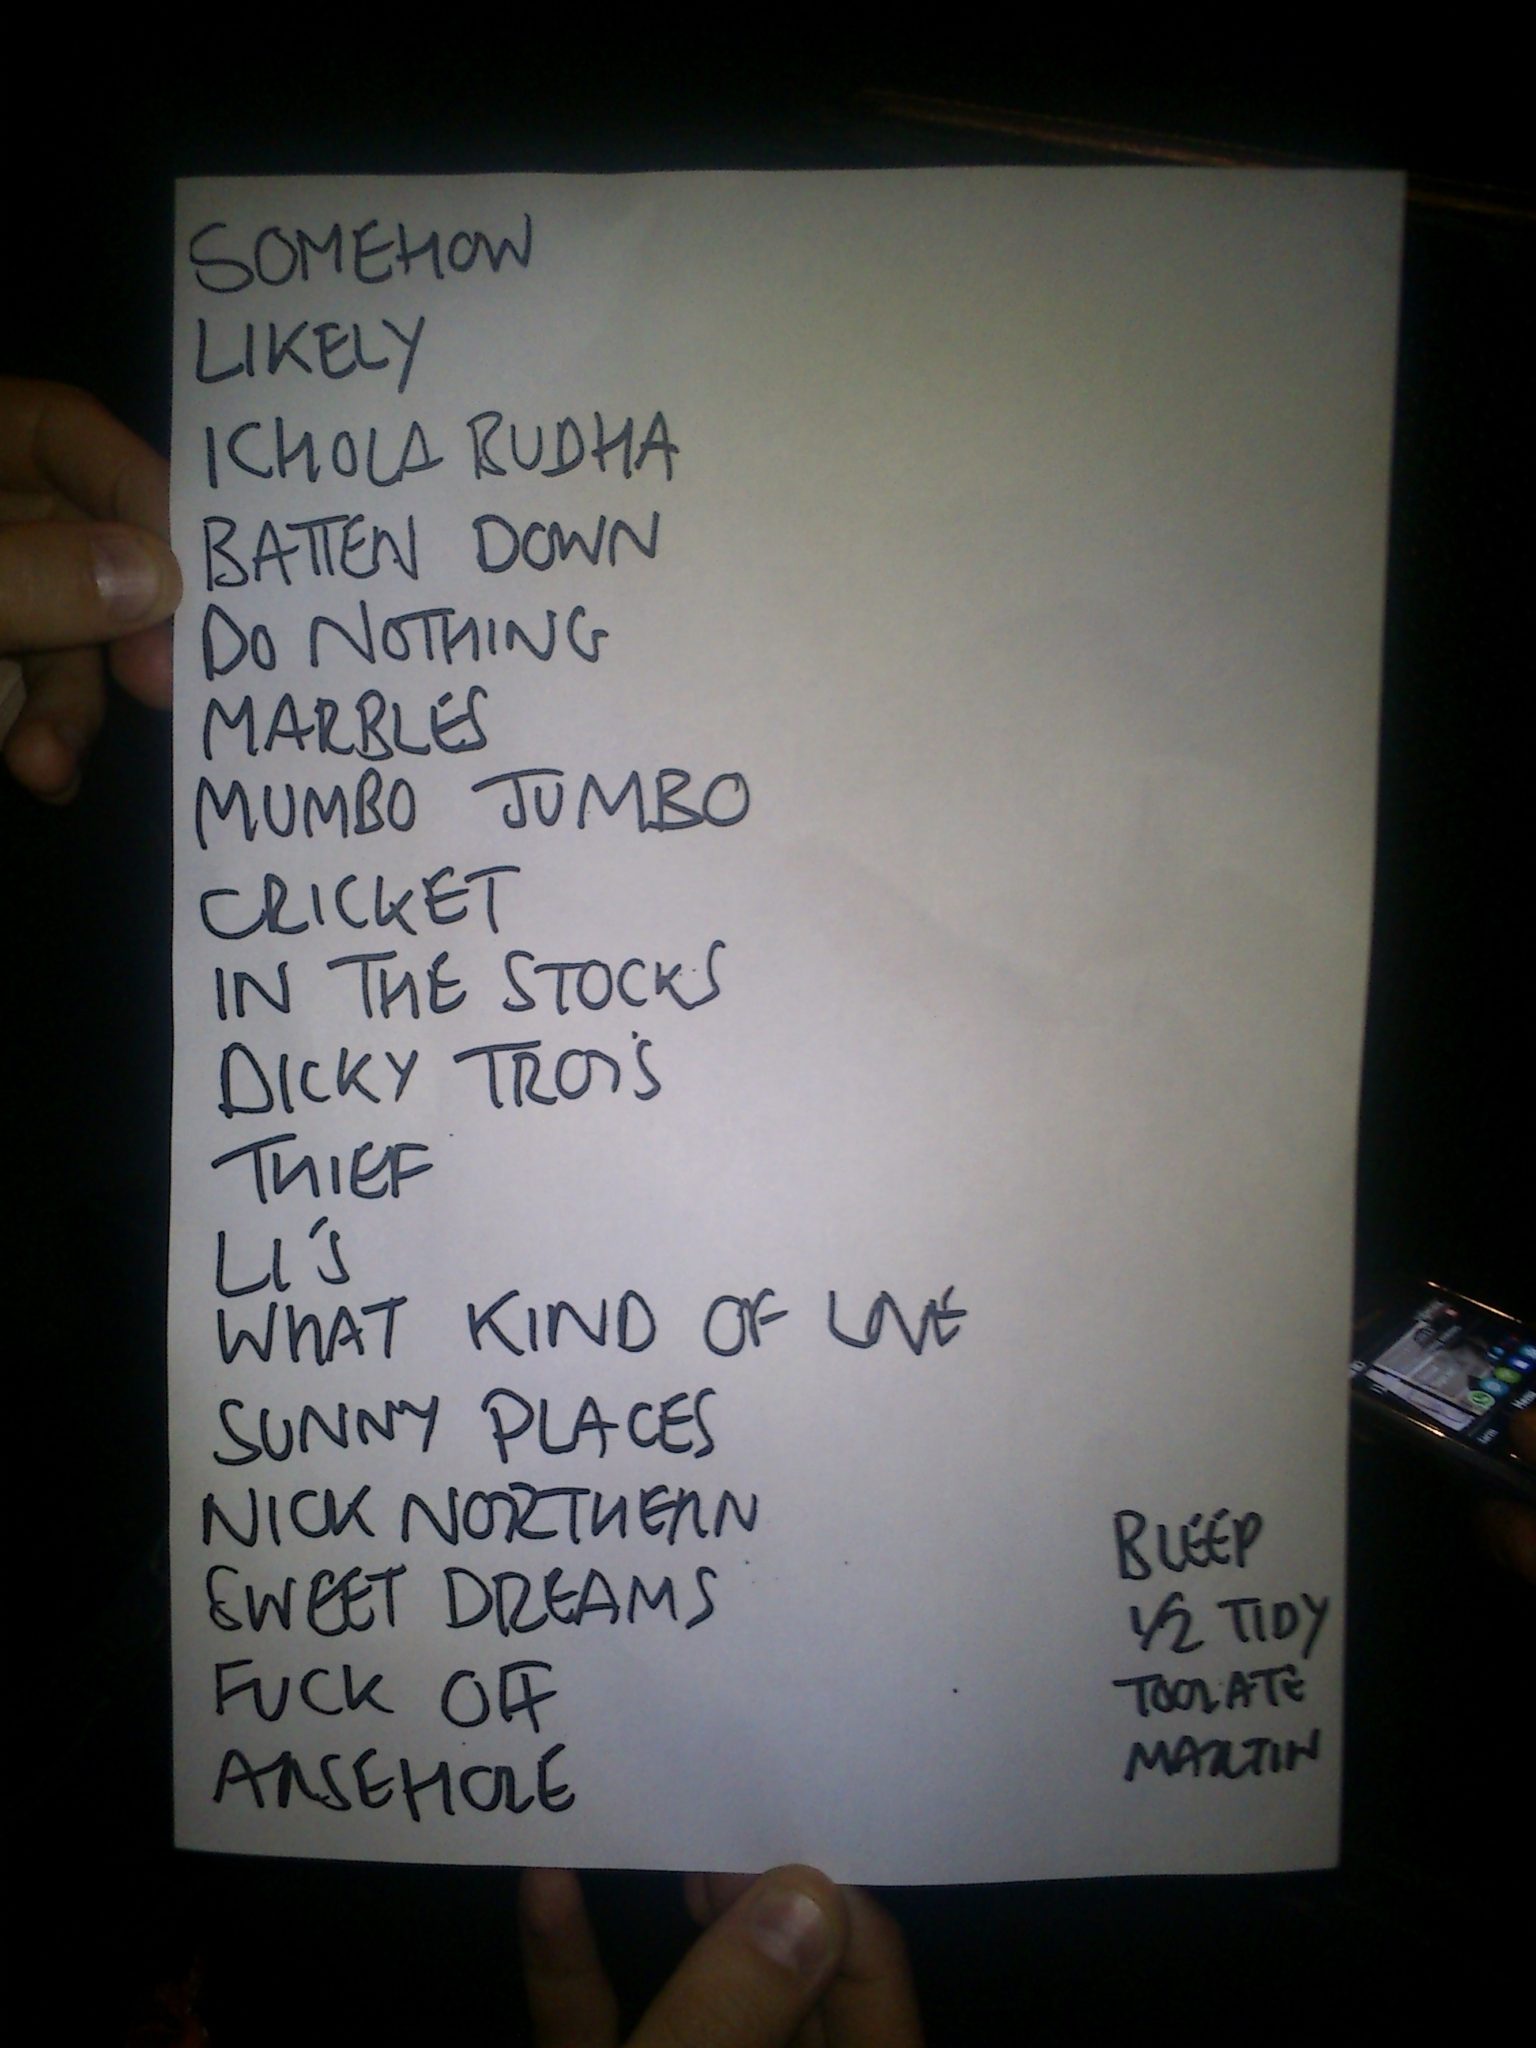 SOMEHOW
LIKELY
ICHOLA BUDHA
BATTEN DOWN
DO NOTHING
MARBLES
MUMBO JUMBO
CRICKET
IN THE STOCKS
DICKY TROI'S
THIEF
LI'S
WHAT KIND OF LOVE
SUNNY PLACES
NICK NORTHERN
SWEET DREAMS
FUCK OFF
ARSEHOLE
BLEEP
1/2 TIDY
TOO LATE
MARTIN